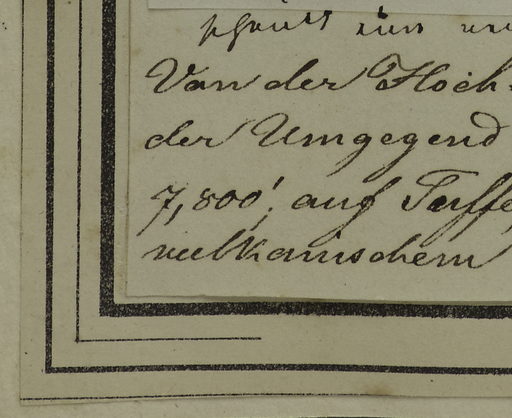 Van der Hoch-
der Umgegend
7,800', auf Tuffe
vulkanischem